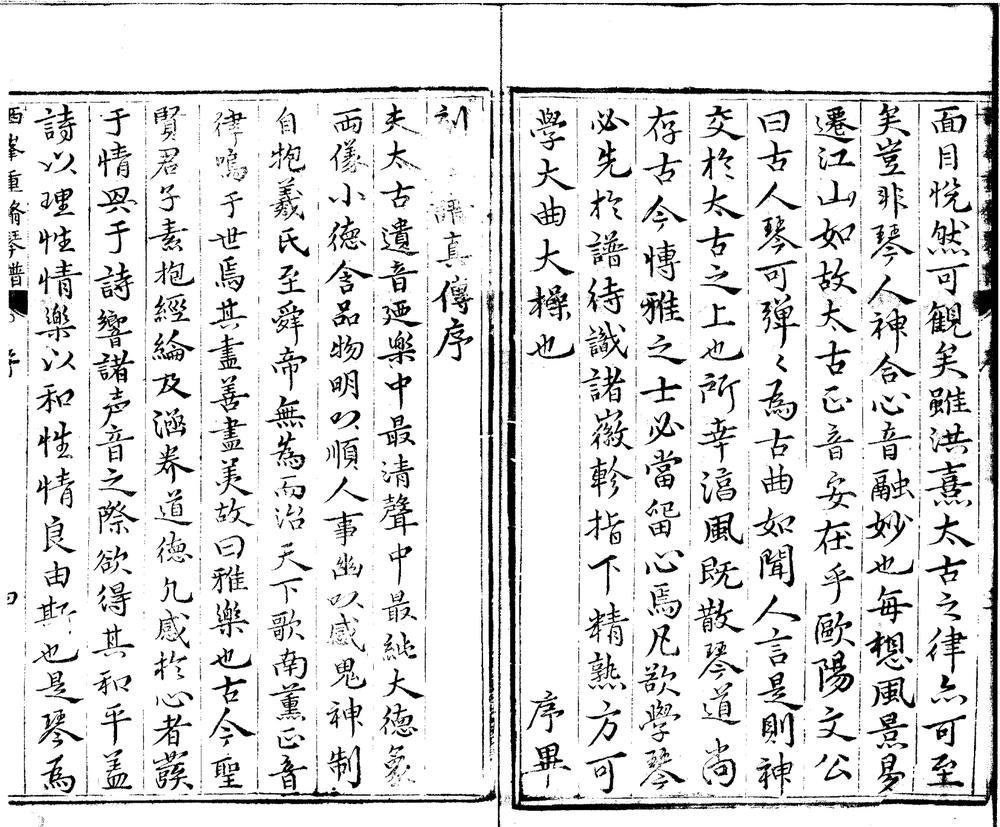 面目恍然可觀矣雖洪熹太古之律亦可至
矣豈非琴人神合心音融妙也每想風景易
遷江山如故太古正音安在乎歐陽文公
曰古人琴可彈〻為古曲如聞人言是則神
交於太古之上也所幸漓風既散琴道尚
存古今博雅之士必當留心焉凡欲學琴
必先於譜待識諸徽軫指下精熟方可
學大曲大操也 序畢
刻 譜真傳序
夫太古遺音廼樂中最清聲中最純大德象
两儀小德含品物明以順人事幽以感鬼神制
自抱羲氏至舜帝無為而治天下歌南薫正音
律鳴于世焉其盡善盡美故曰雅樂也古今聖
賢君子素抱經綸及涵养道德凡感於心者蕟
于情興于詩響諸声音之際欲得其和平盖
詩以理性情樂以和性情良由斯也是琴焉
西峯重脩琴譜 序 四